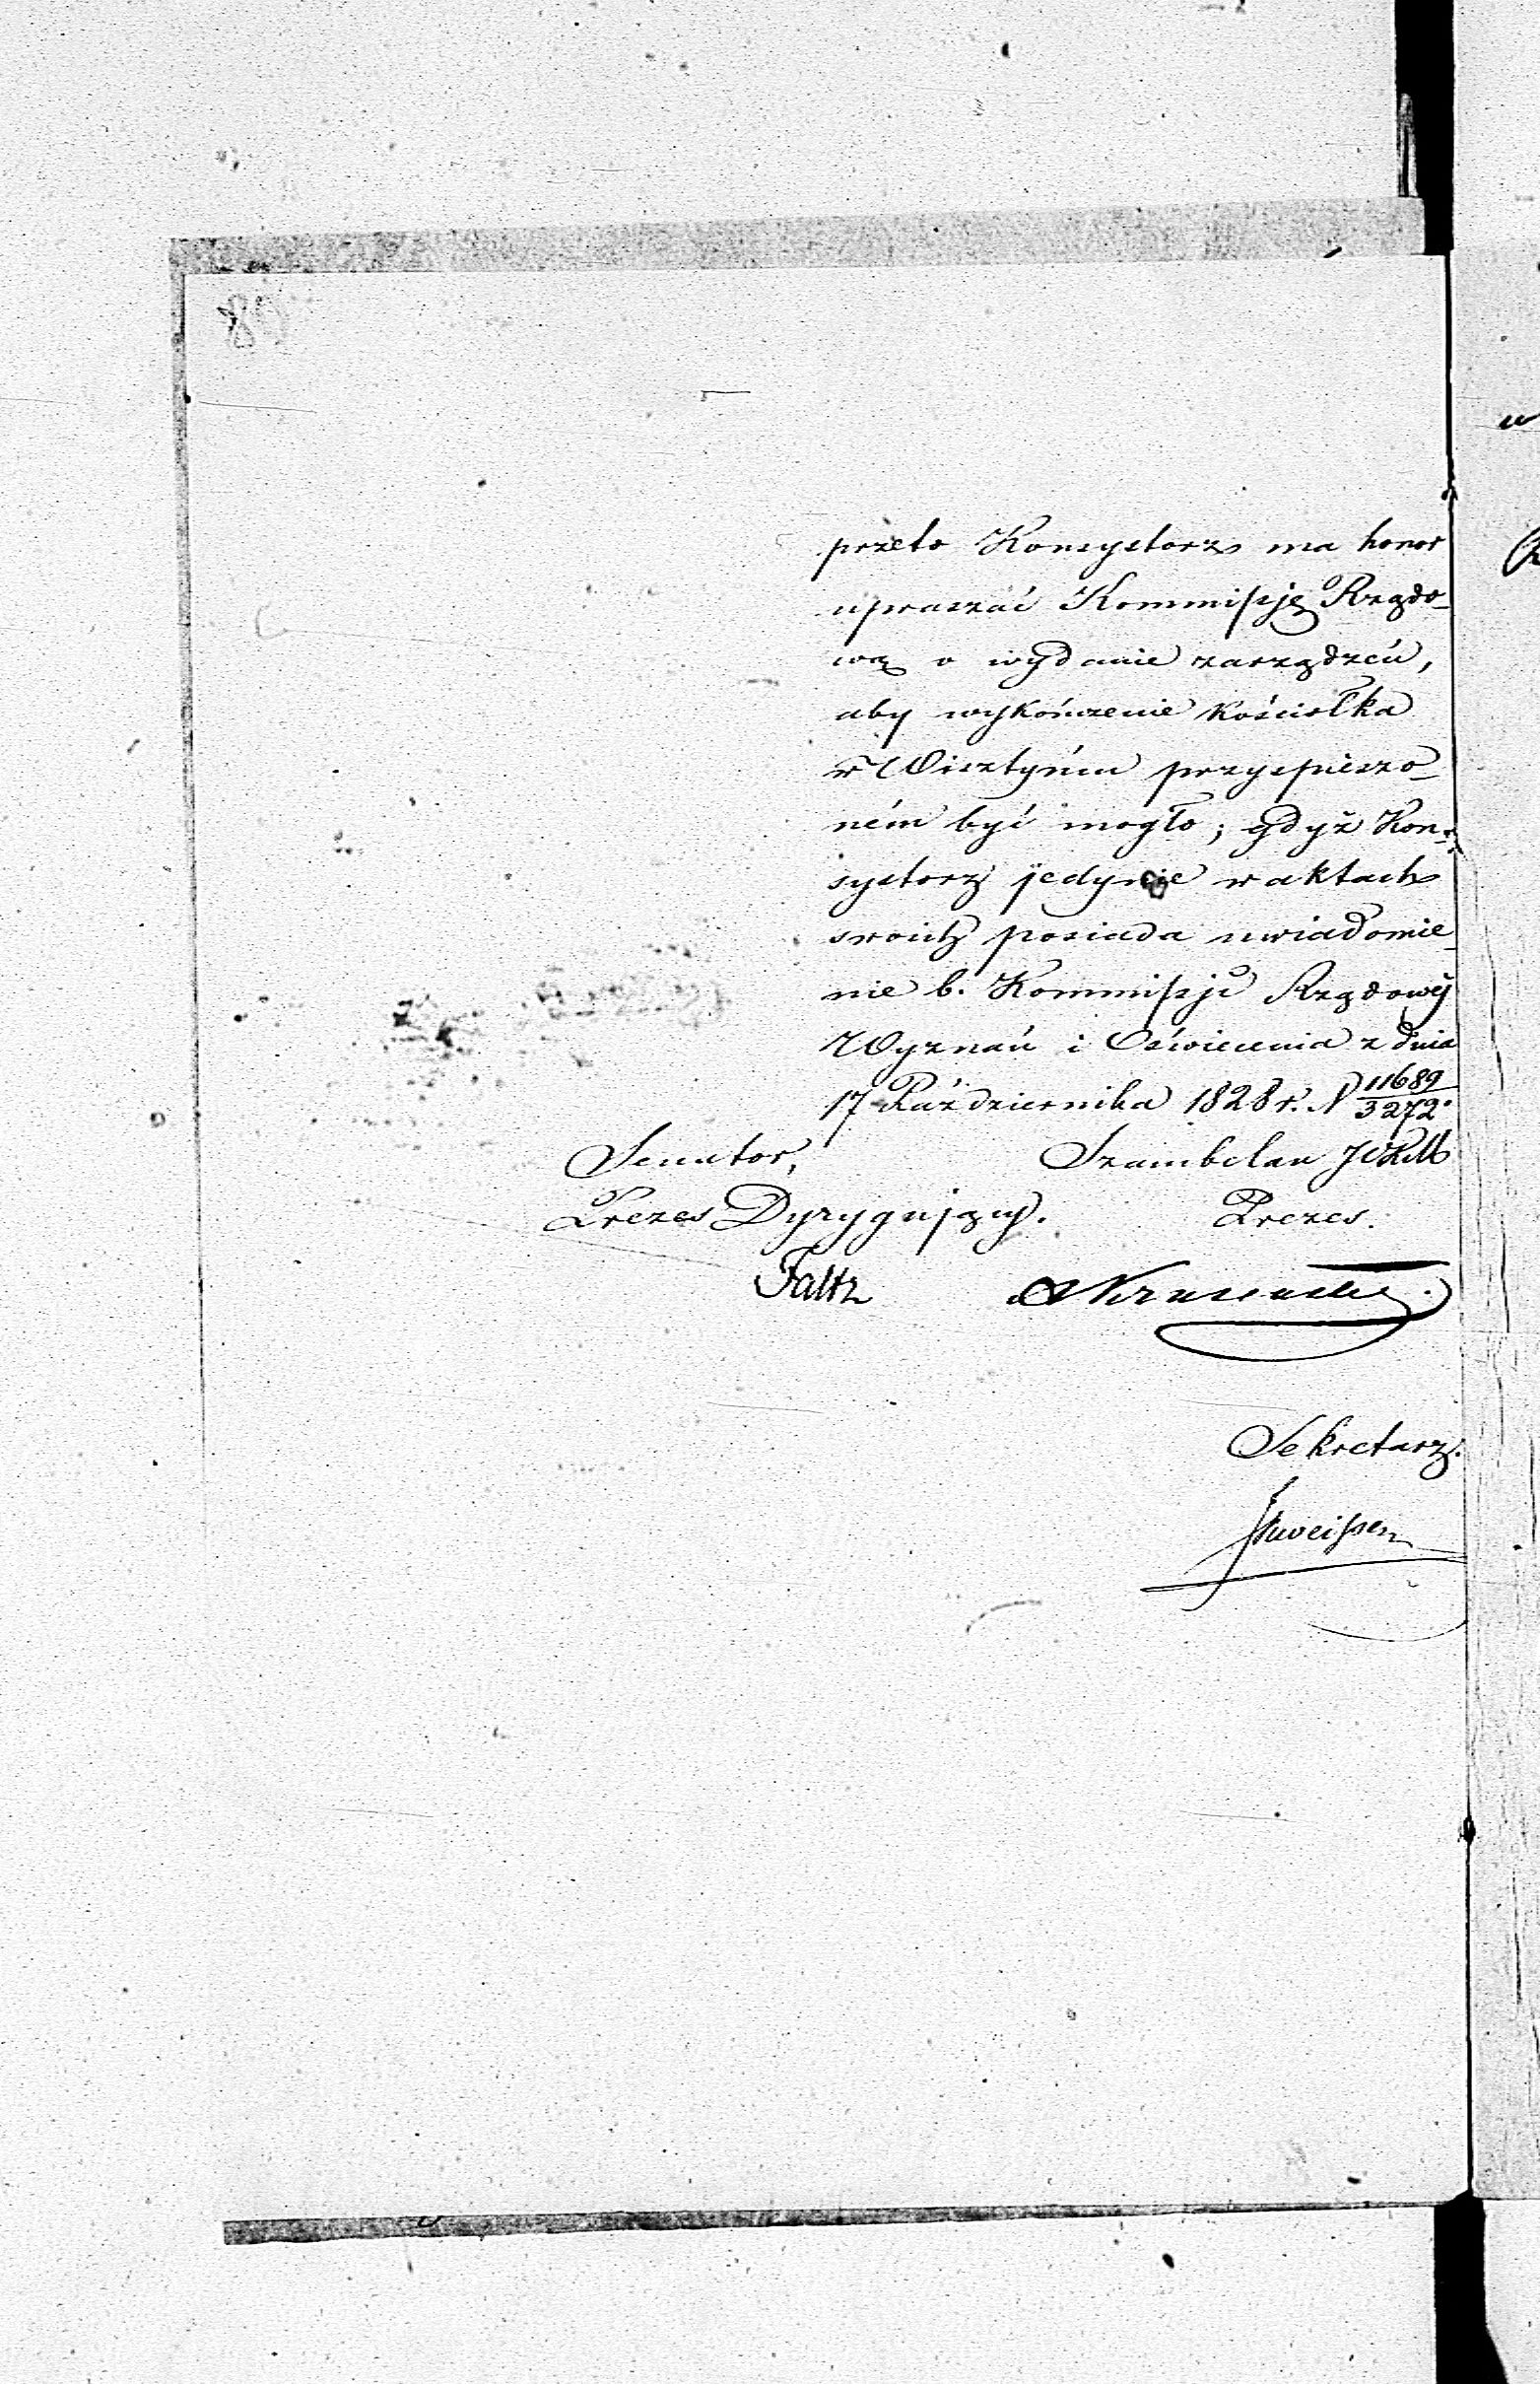 przeto Konsystorz ma honor
upraszać Kommissję Rządo-
wą o wydanie zarządzeń,
aby wykończenie Kościołka
w Wisztyńcu przyspieszo-
ném być mogło; gdyż Kon-
systorz jedynie w aktach
swoich posiada uwiadomie-
nie b. Kommissji Rządowéj
Wyznań i Oświecenia z dnia
17 Października 1828 r. N 11689/3272.
Senator, Szambelan JCKM
Prezes Dyrygujący. Prezes.
Faltz
Sekretarz.